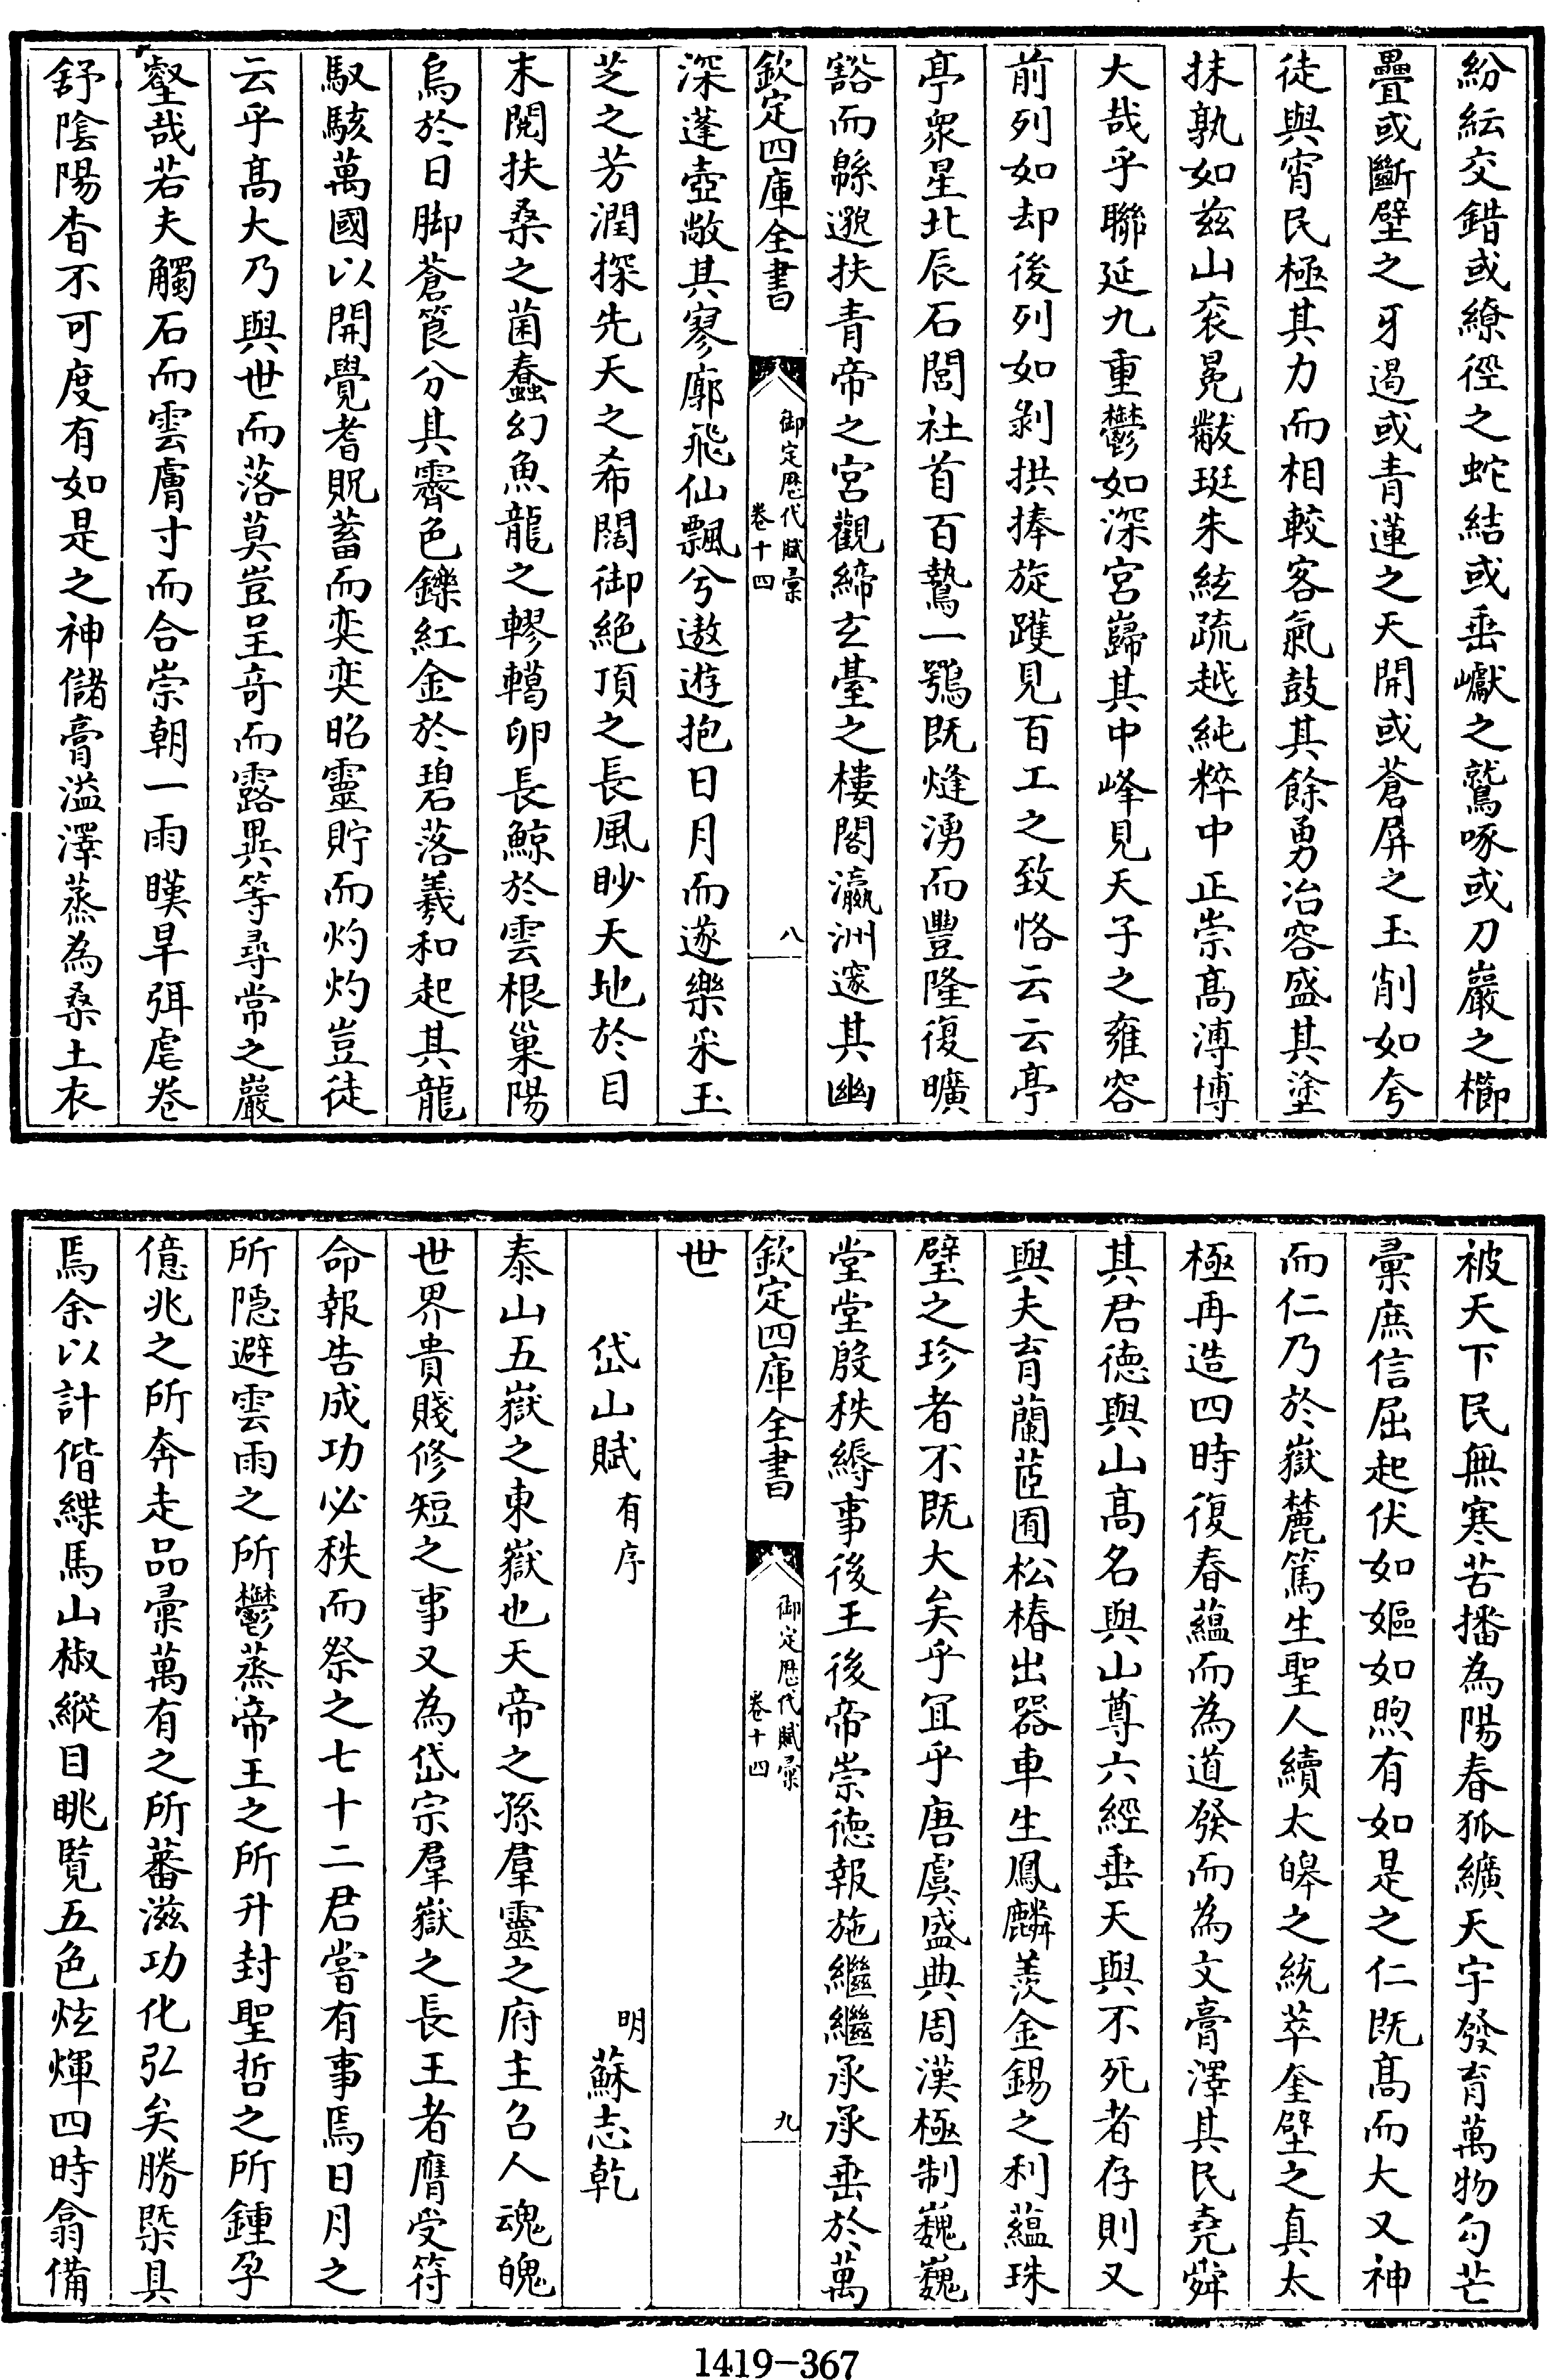 紛紜交錯或繚徑之蛇結或垂巘之鷲啄或刀巖之櫛
疊或斷壁之牙遏或青蓮之天開或蒼屏之玉削如夸
徒與宵民極其力而相較客氣鼓其餘勇冶容盛其塗
抹孰如兹山衮冕黻珽朱絃疏越純粹中正崇高溥博
大哉乎聯延九重鬱如深宮巋其中峰見天子之雍容
前列如却後列如剝拱捧旋躩見百工之致恪云云亭
亭眾星北辰石閭社首百鷙一鶚既熢湧而豐隆復曠
豁而緜邈扶青帝之宮觀締玄臺之樓閣瀛洲邃其幽
欽定四庫全書
御定歷代賦彙
卷十四
八
深蓬壺敞其寥廓飛仙飄兮遨遊抱日月而遂樂采玉
芝之芳潤探先天之希闊御絕頂之長風眇天地於目
末閱扶桑之菌蠢幻魚龍之轇轕卵長鯨於雲根巢陽
烏於日脚蒼筤分其霽色鑠紅金於碧落羲和起其龍
馭駭萬國以開覺耆貺蓄而奕奕昭靈貯而灼灼豈徒
云乎高大乃與世而落莫豈呈奇而露異等尋常之巖
壑哉若夫觸石而雲膚寸而合崇朝一雨暵旱弭虐卷
舒陰陽杳不可度有如是之神儲膏溢澤蒸為桑土衣
被天下民無寒苦播為陽春狐纊天宇發育萬物勾芒
彙庶信屈起伏如嫗如煦有如是之仁既高而大又神
而仁乃於嶽麓篤生聖人續太皞之統萃奎壁之真太
極再造四時復春蘊而為道發而為文膏澤其民堯舜
其君德與山高名與山尊六經垂天與不死者存則又
與夫育蘭茝囿松椿出器車生鳳麟羨金錫之利蘊珠
璧之珍者不既大矣乎宜乎唐虞盛典周漢極制巍巍
堂堂殷秩縟事後王後帝崇德報施繼繼承承垂於萬
欽定四庫全書
御定歷代賦彙
卷十四
九
世
岱山賦有序
明蘇志乾
泰山五嶽之東嶽也天帝之孫羣靈之府主召人魂魄
世界貴賤修短之事又為岱宗羣嶽之長王者膺受符
命報告成功必秩而祭之七十二君嘗有事焉日月之
所隱避雲雨之所鬱蒸帝王之所升封聖哲之所鍾孕
億兆之所奔走品彙萬有之所蕃滋功化弘矣勝槩具
焉余以計偕緤馬山椒縱目眺覧五色炫煇四時翕備
1419-367